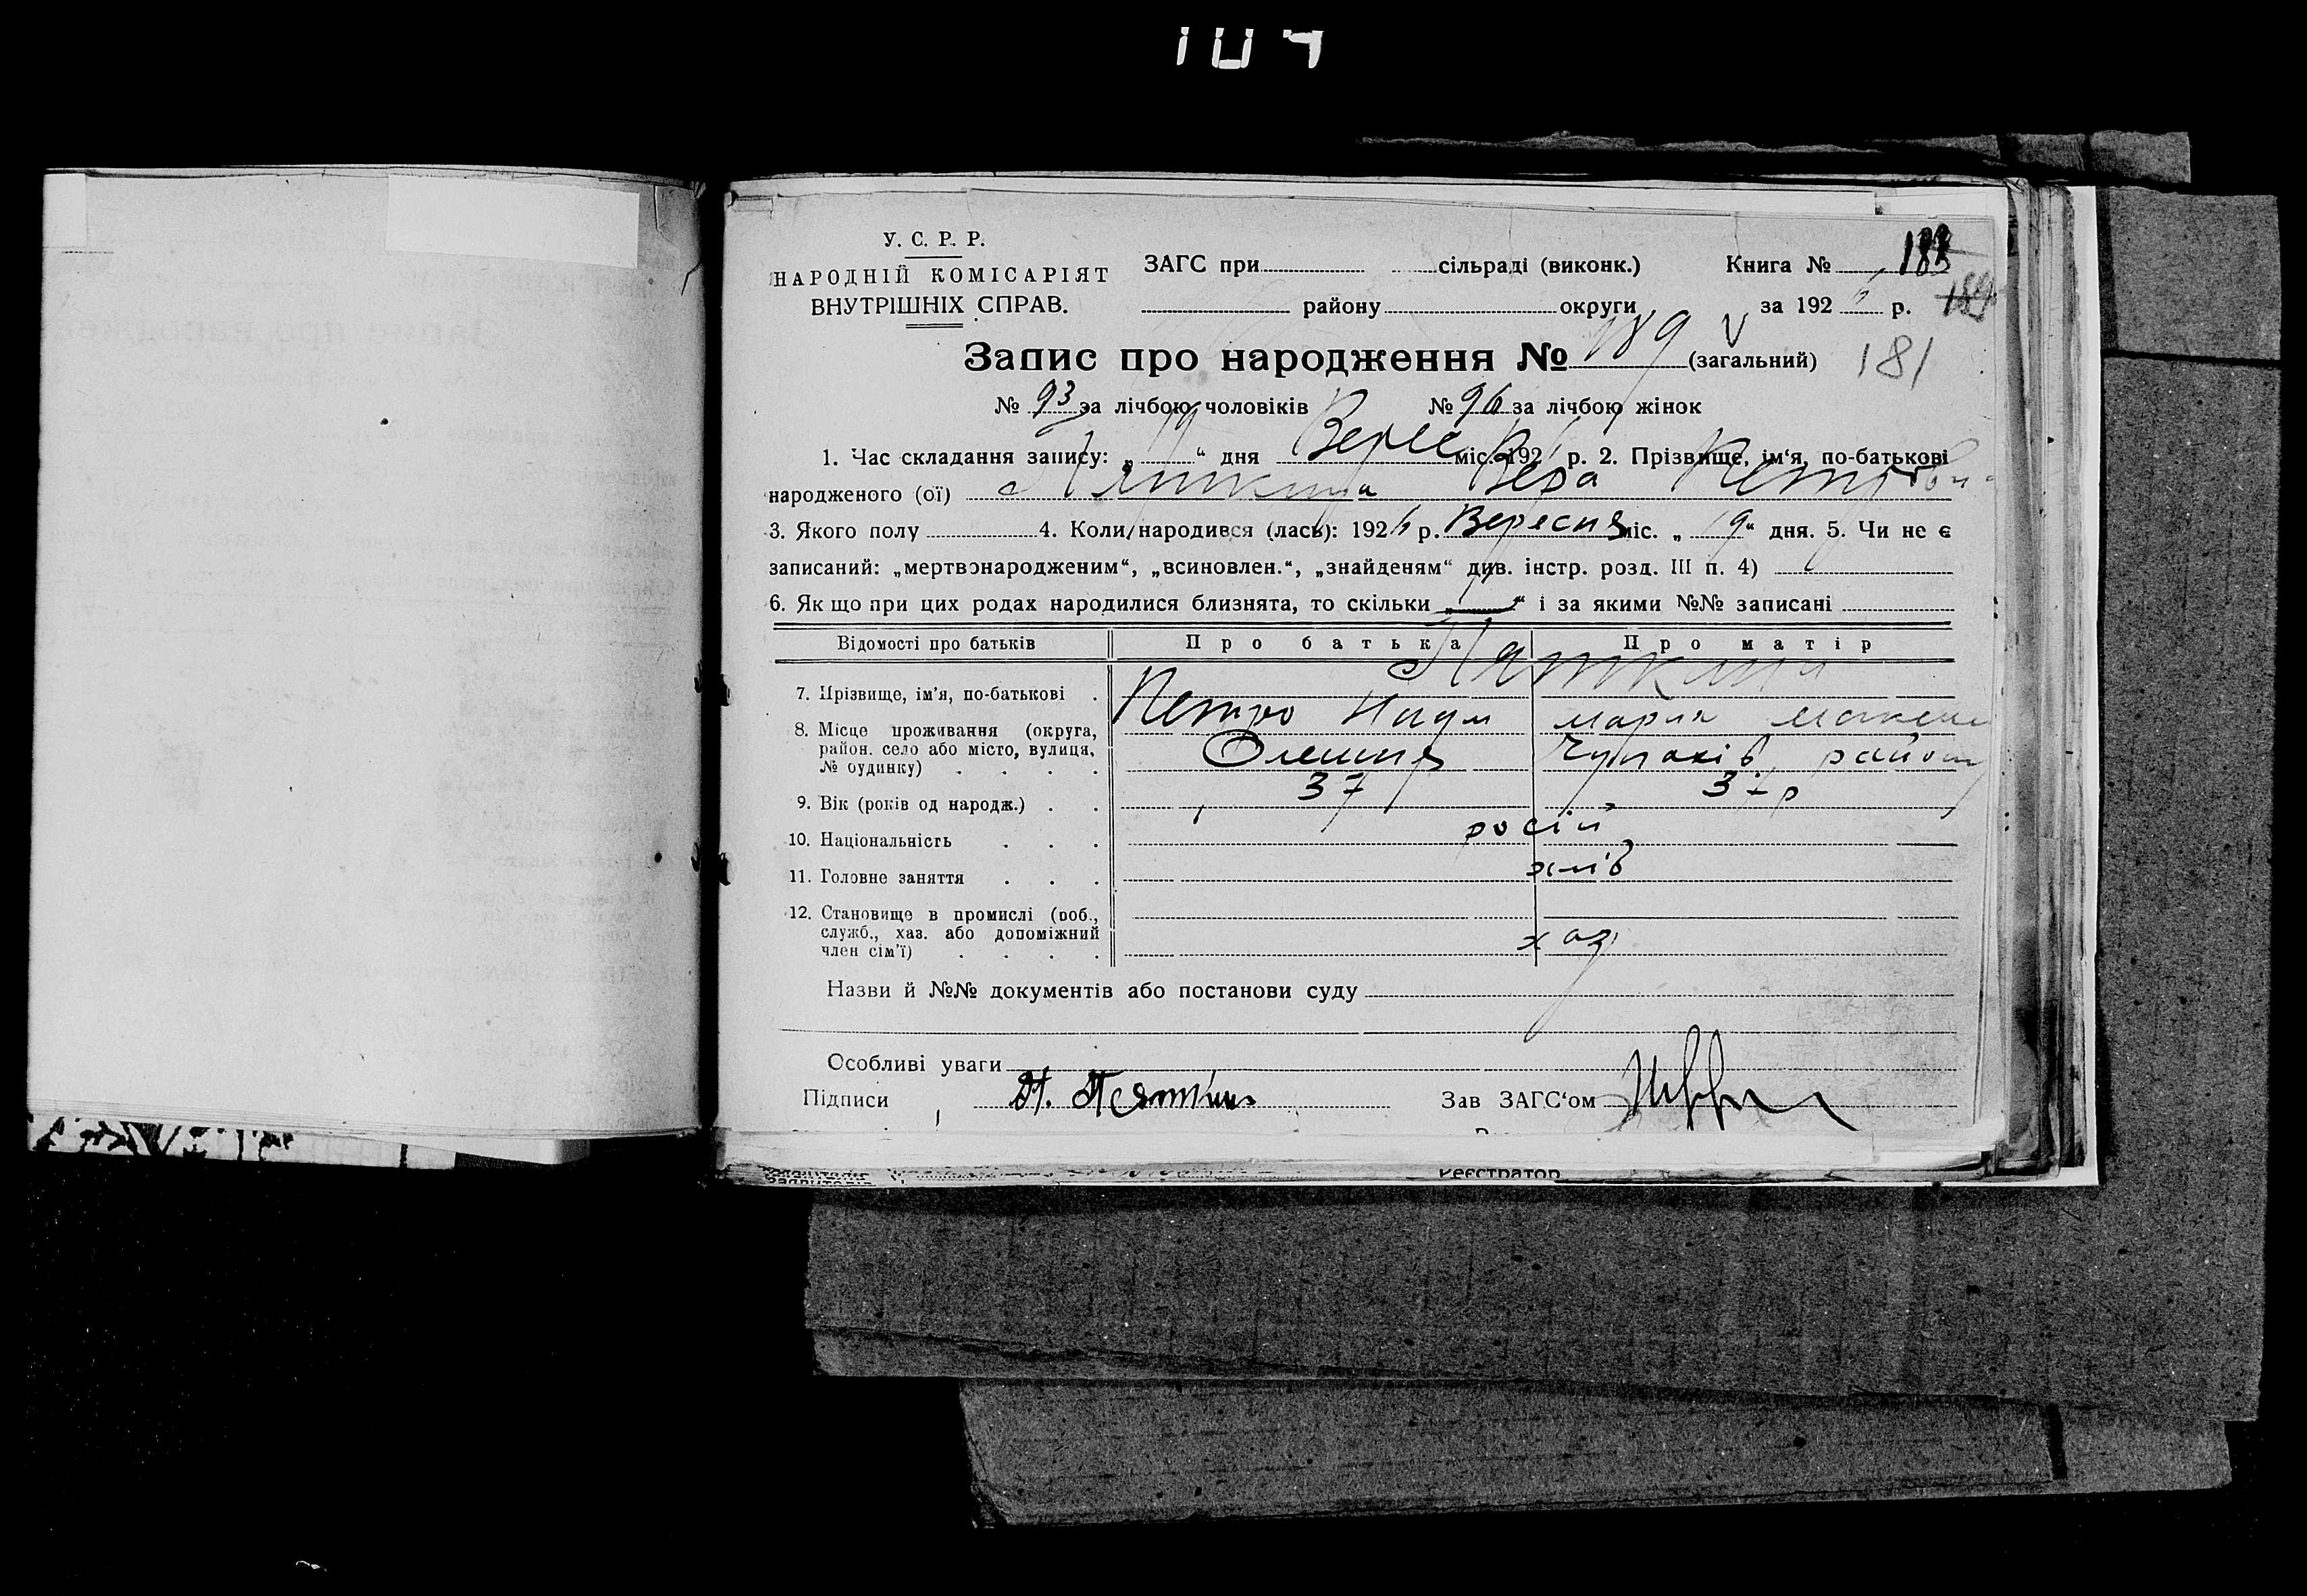 У. С. Р. Р.
НАРОДНІЙ КОМІСАРІЯТ
ВНУТРІШНІХ СПРАВ.
ЗАГС при сільраді (виконк.) Книга №
району округи за 192 6 р.
181
Запис про народження № 189 (загальний)
№ 93 за лічбою чоловіків № 96 за лічбою жінок
1. Час складання запису: „ 19 “ дня Верес міс. 192 6 р. 2. Прізвище, ім‘я, по-батькові
народженого (ої) Вера Петровн
3. Якого полу 4. Коли народився (лась): 192 6 р. Вересня міс. „ 9 “ дня. 5. Чи не є
записаний: „мертвонародженим“, „всиновлен.“, „знайденям“ див. інстр. розд. III п. 4)
6. Як що при цих родах народилися близнята, то скільки „ “ і за якими №№ записані
Відомості про батьків Про батька Про матір
7. Прізвище, ім’я, по-батькові . Петро Мария
8. Місце проживання (округа,
район. село або місто, вулиця,
№ будинку) . . . . Олешня Чупахів район
9. Вік (років од народж.) . . 37 37 р
10. Національність . . . росій
11. Головне заняття . . . хліб
12. Становище в промислі (роб.,
служб., хаз. або допоміжний
член сім’ї) . . . . хаз
Назви й №№ документів або постанови суду
Особливі уваги
Підписи Зав ЗАГС‘ом
Реєстратор